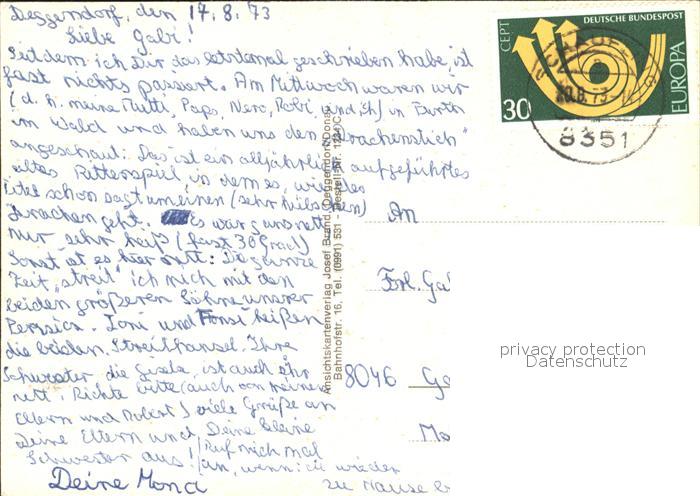 Deggendorf, den 17.8.73
Liebe Gabi!
Seitdem ich Dir das letztemal geschrieben habe, ist
fast nichts passiert. Am Mittwoch waren wir
(d. h. meine Mutti, Papa, Nero, Robi und ich) in Furth
im Wald und haben uns den "Drachenstich"
angeschaut: Das ist ein alljährlich aufgeführtes
altes Ritterspiel in dem es, wie der
Titel schon sagt um einen (sehr hübschen)
Drachen geht. Es war ganz nett
nur sehr heiß (fast 30 Grad)
Sonst ist es hier nett: Die ganze
Zeit "streit" ich mich mit den
beiden größeren Söhne unserer
Toni und Fonsi heißen
die beiden Streithansel. Ihre
Schwester, die Gisela, ist auch sehr
nett. Richte bitte (auch von meinen
Eltern und Robert) viele Grüße an
Deine Eltern und Deine kleine
Schwester aus! (Ruf mich mal
an, wenn ihr wieder
zu Hause
Deine Mona
Ansichtskartenverlag Josef Brand, Deggendorf/Donau
Bahnhofstr. 16, Tel. (0991) 531 - Bestell-Nr. 1284/C
CEPT
DEUTSCHE BUNDESPOST
EUROPA
30
8351
An
Frl. Ga
8046 Ga
privacy protection
Datenschutz